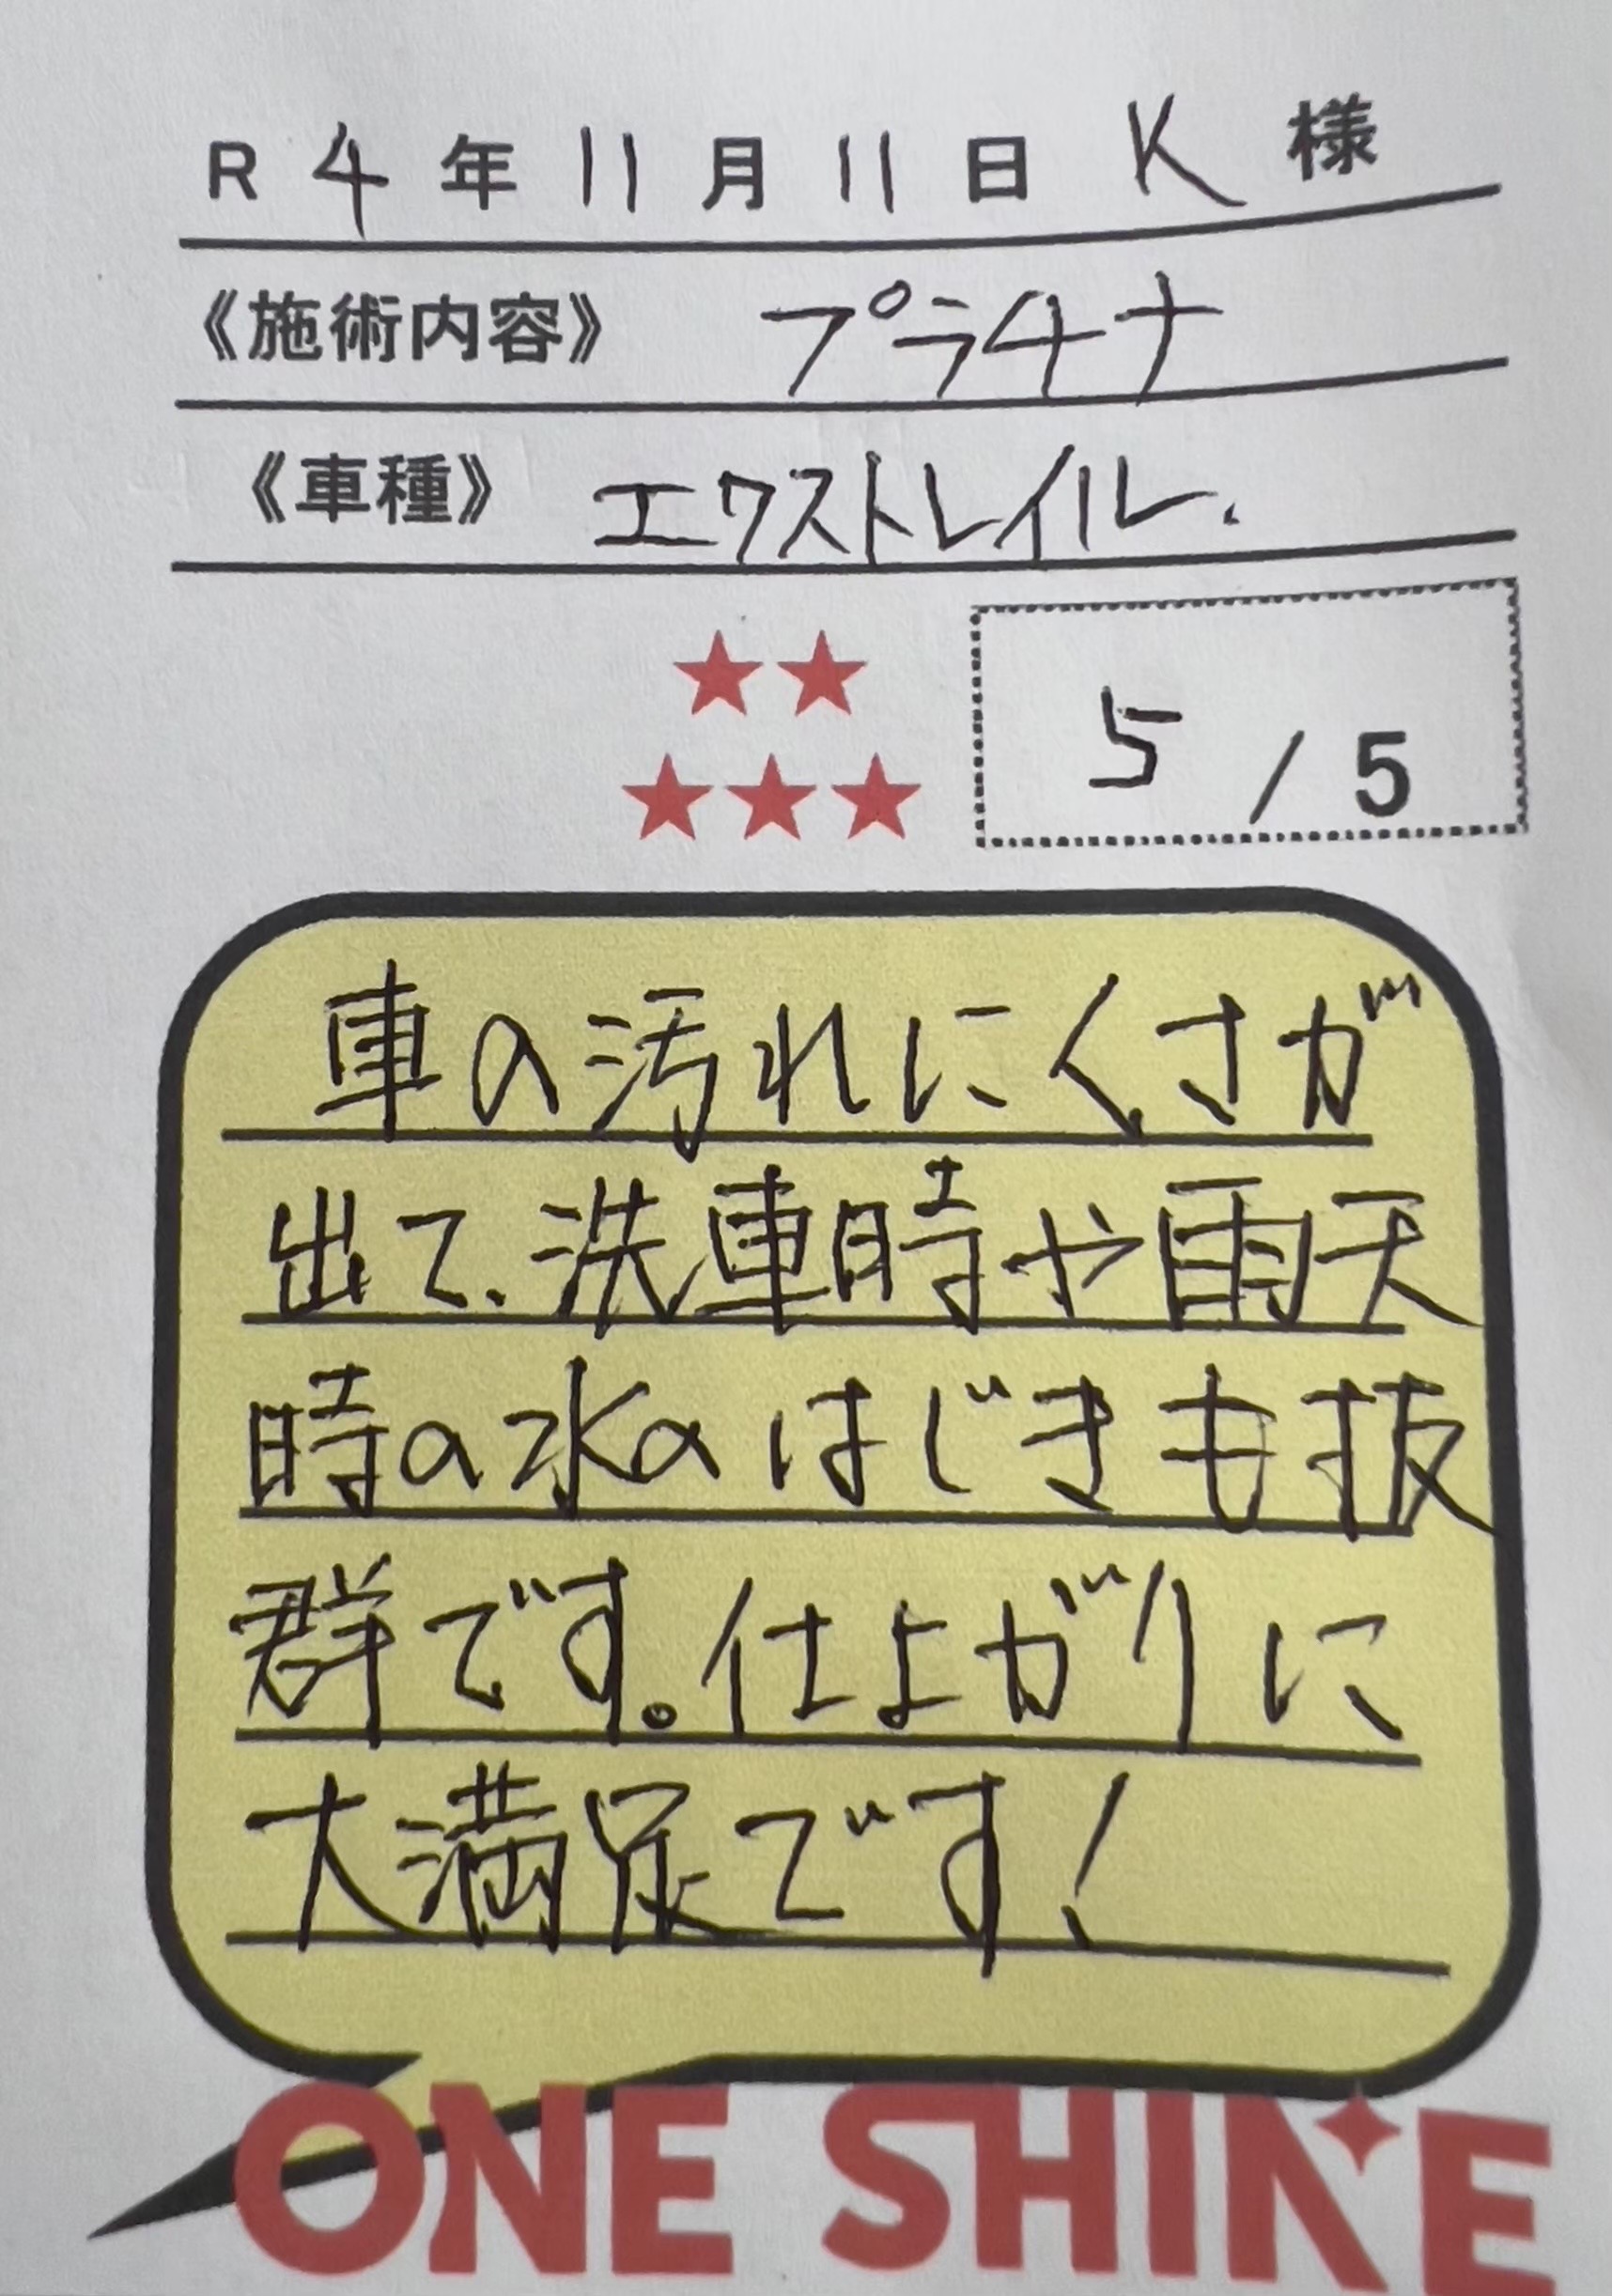 R 4 年 11 月 11 日 K 様
《施術内容》 プラチナ
《車種》 エクストレイル.
5 / 5
車の汚れにくさが
出て、洗車時や雨天
時の水のはじきも抜
群です。仕上がりに
大満足です!
ONE SHINE